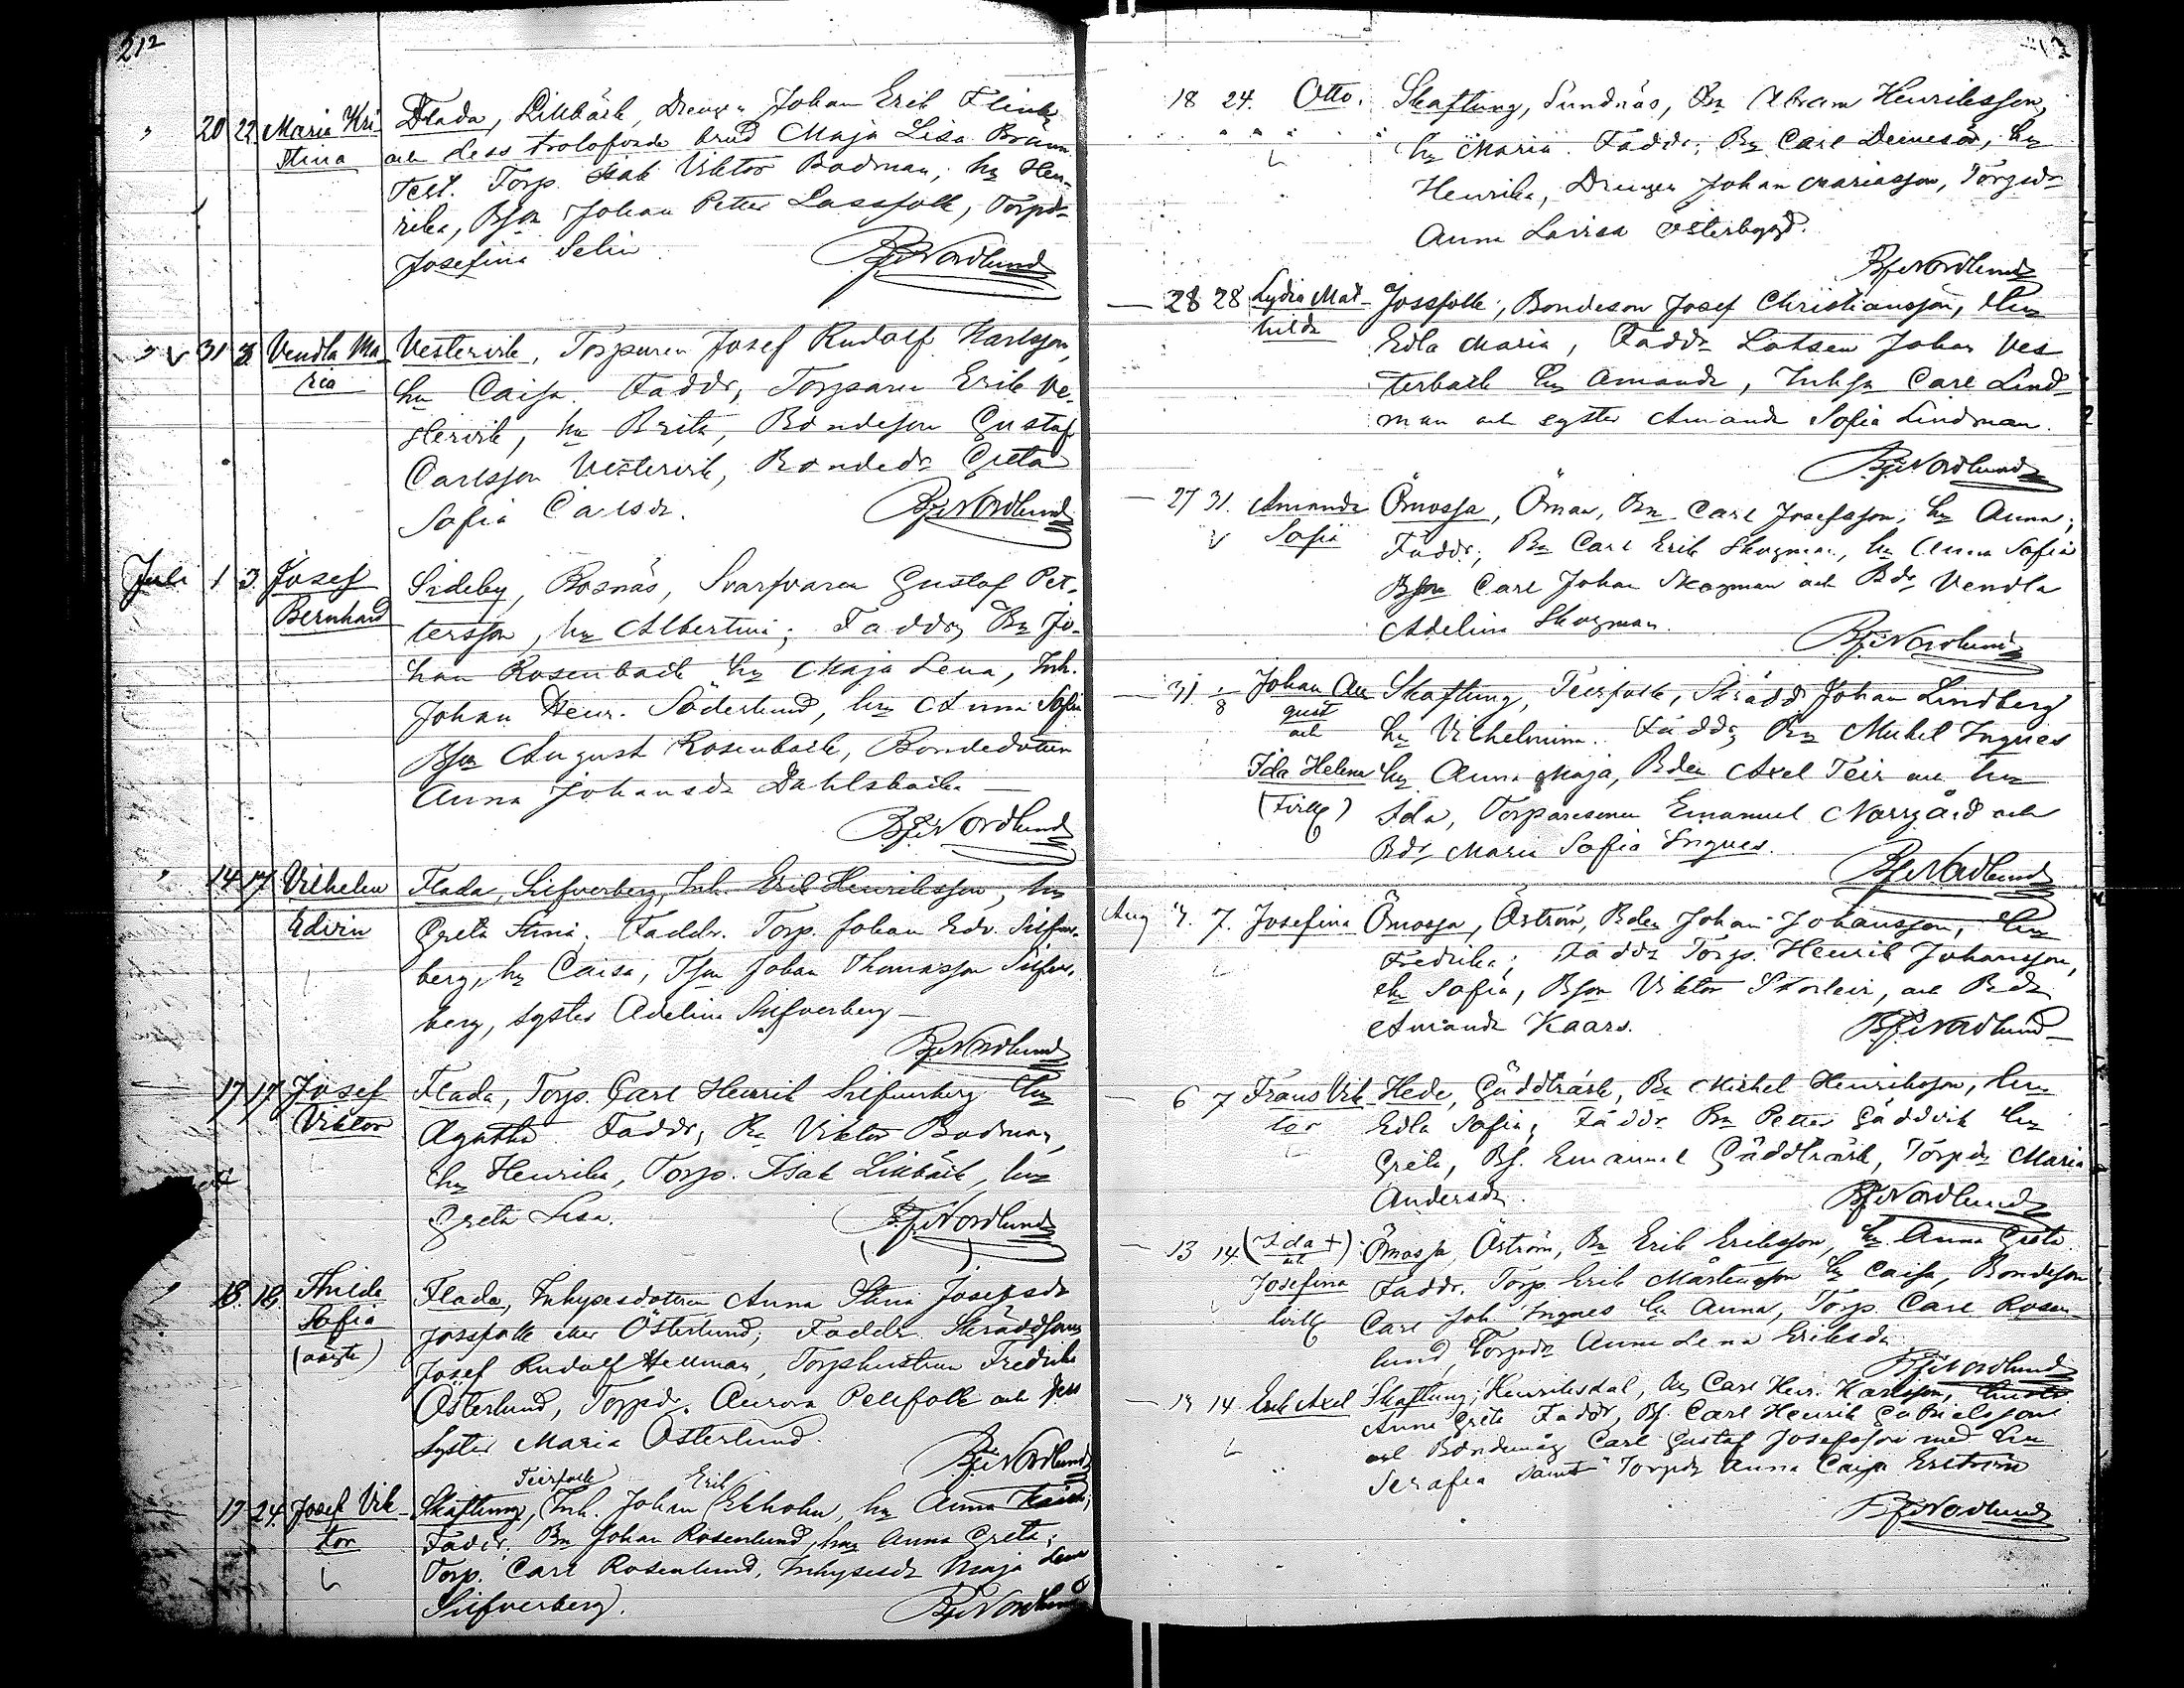 212
" 20 22. Maria Kri- Flada, Lillbäck, Drengen Johan Erik Flink
stina och dess trolofvade brud Maja Lisa Bränn
Test. Torp. Isak Viktor Bodman, hu Hen-
rika, Bson Johan Petter Lassfolk, Torpdr
Josefina Selin
BfNordlund
" v 31 3 Vendla Ma- Vestervik, Torparen Josef Rudolf Karlsson,
ria hu Caisa. Faddr, Torparen Erik Ve-
stervik, hu Brita, Bondeson Gustaf
Carlsson Vestervik, Bondedr Greta
Sofia Carlsdr.
BfNordlund
Juli 1 3 Josef Sideby, Rosnäs, Svarfvaren Gustaf Pet-
Bernhard tersson, hu Albertina; Faddr, Bn Jo-
han Rosenback hu Maja Lena, Inh.
Johan Henr. Söderlund, hu Anna Sofia
Bson August Rosenback, Bondedottern
Anna Johansdr Dahlsbacka —
BfNordlund
" 14 17 Vilhelm Flada, Silfverberg, Inh. Erik Henriksson, hu
Edvin Greta Stina. Faddr. Torp. Johan Edv. Silfver-
berg, hu Caisa, Tson Johan Thomasson Silfver-
berg, syster Adelina Silfverberg —
BfNordlund
— 17 17 Josef Flada, Torp. Carl Henrik Silfverberg hu
Viktor Agatha. Faddr, Bn Viktor Bodman,
hu Henrika, Torp. Isak Lillbäck, hu
Greta Lisa.
BfNordlund
" 18. 18. Thilda Flada, Inhysesdottern Anna Stina Josefsdr
Sofia Jossfolk eller Österlund; Faddr. Skräddaren
(oägta) Josef Rudolf Hellman, Torphustrun Fredrika
Österlund, Torpdr. Aurora Pellfolk och dess
Syster Maria Österlund.
BfNordlund
Teirfolk Erik
— 17 24. Josef Vik- Skaftung, Inh. Johan Ekholm, hu Anna Kaisa;
tor Faddr. Bn Johan Rosenlund, hu Anna Greta;
Torp. Carl Rosenlund, Inhysesdr Maja Lena
Silfverberg.
BfNordlund
18 24. Otto. Skaftung, Sundnäs, Bn Abram Henriksson,
hu Maria. Faddr, Bn Carl, hu
Henrika, Drengen Johan Mariasson, Torpedr
Anna Lovisa Österbygd.
BfNordlund
— 28 28 Lydia Mat- Jossfolk, Bondeson Josef Christiansson, hu
hilda Edla Maria, Faddr Lotsen Johan Ves
terback hu Amanda, Inhsn Carl Lind-
man och syster Amanda Sofia Lindman.
BfNordlund
— 27 31. Amanda Ömossa, Öman, Bn Carl Josefsson, hu Anna;
v Sofia Faddr, Bn Carl Erik Skogman, hu Anna Sofia
Bson Carl Johan Skogman och Bdr Vendla
Adelina Skogman.
BfNordlund
— 31 1/8 Johan Au Skaftung, Teirfolk, Skrädd. Johan Lindberg
gust hu Vilhelmina. Faddr, Bn Mickel Ingves
och
Ida Helena hu Anna Maja, Bden Axel Teir och hu
(tvill) Ida, Torparesonen Emanuel Norrgård och
Bdr Maria Sofia Ingves.
BfNordlund
Aug 4. 7. Josefina Ömossa, Åström, Bden Johan Johansson, hu
Fredrika; Faddr Torp. Henrik Johansson,
hu Sofia, Bson Viktor Storteir, och Bdr
Amanda Kaars. BfNordlund
— 6 7 Frans Vik- Hede, Gäddträsk, Bn Mickel Henriksson, hu
tor Edla Sofia; Faddr Bn Petter Gäddvik hu
Greta, Bs. Emanuel Gäddträsk, Torpdr Maria
Andersdr.
BfNordlund
— 13 14 (Ida +) Ömossa, Åström, Bn Erik Eriksson, hu Anna Greta.
och
Josefina Faddr. Torp. Erik Mårtensson hu Caisa, Bondeson
tvill Carl Joh. Ingves hu Anna, Torp. Carl Rosen-
lund, Torpdr Anna Lena Eriksdr.
BfNordlund
— 13 14. Erik Axel Skaftung, Henriksdal, Bn Carl Henr. Karlsson, hustr
Anna Greta Faddr, Bs. Carl Henrik Gabrielsson
och Bondemåg Carl Gustaf Josefsson med hu
Serafia samt Torpdr Anna Caisa Erström
BfNordlund